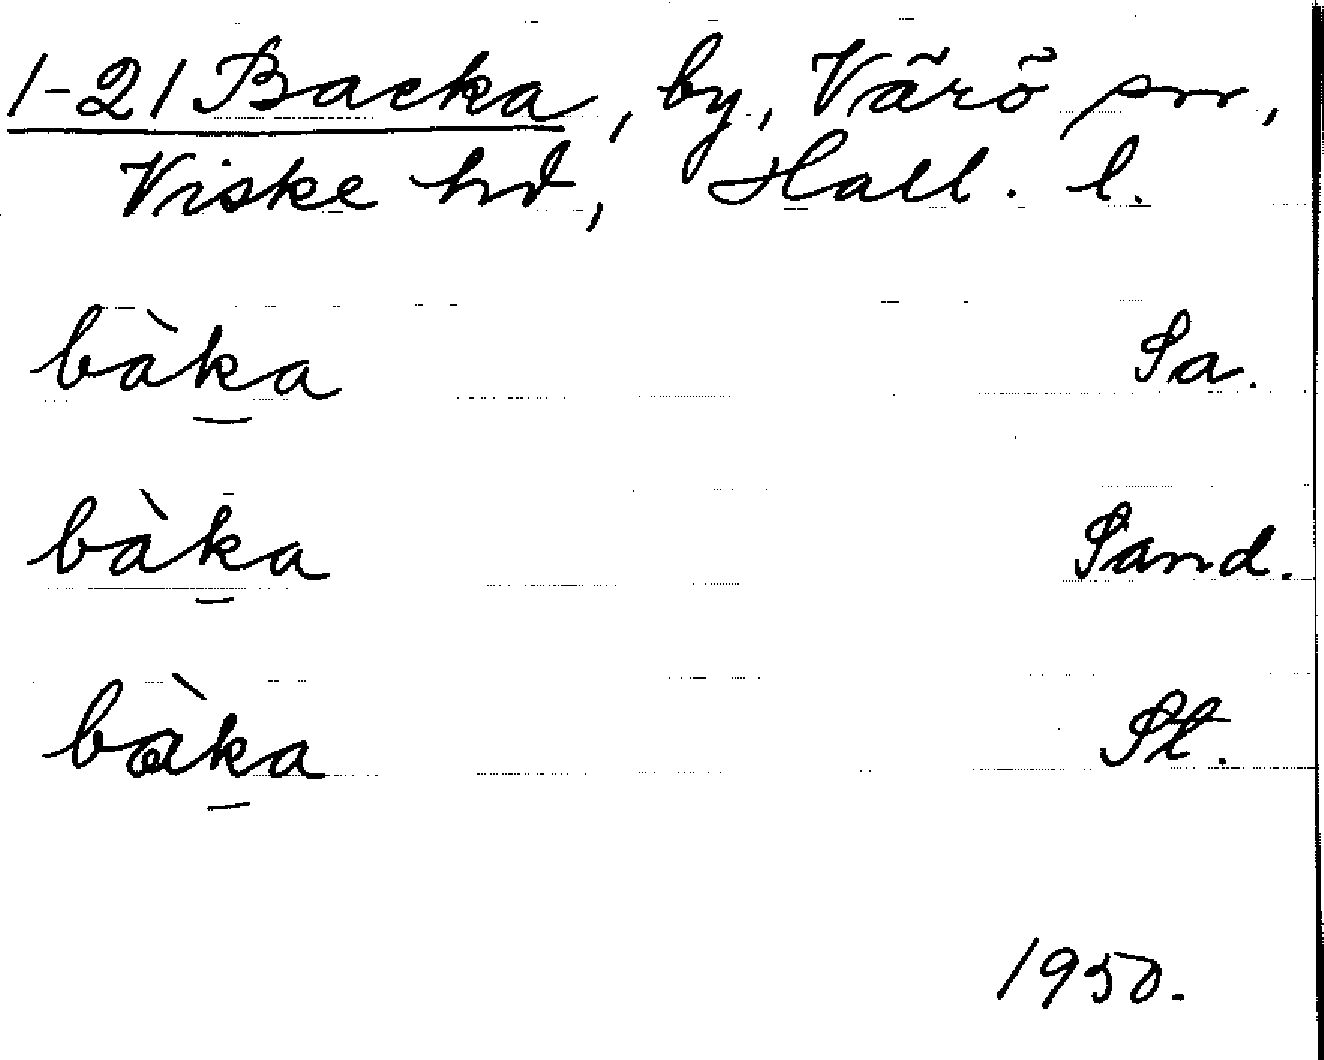 1-21 Backa, by, Värö sn,
Viske hd, Hall. l.
bàk̲a Sa.
bàk̲a Sand.
bàk̲a St.
1950.